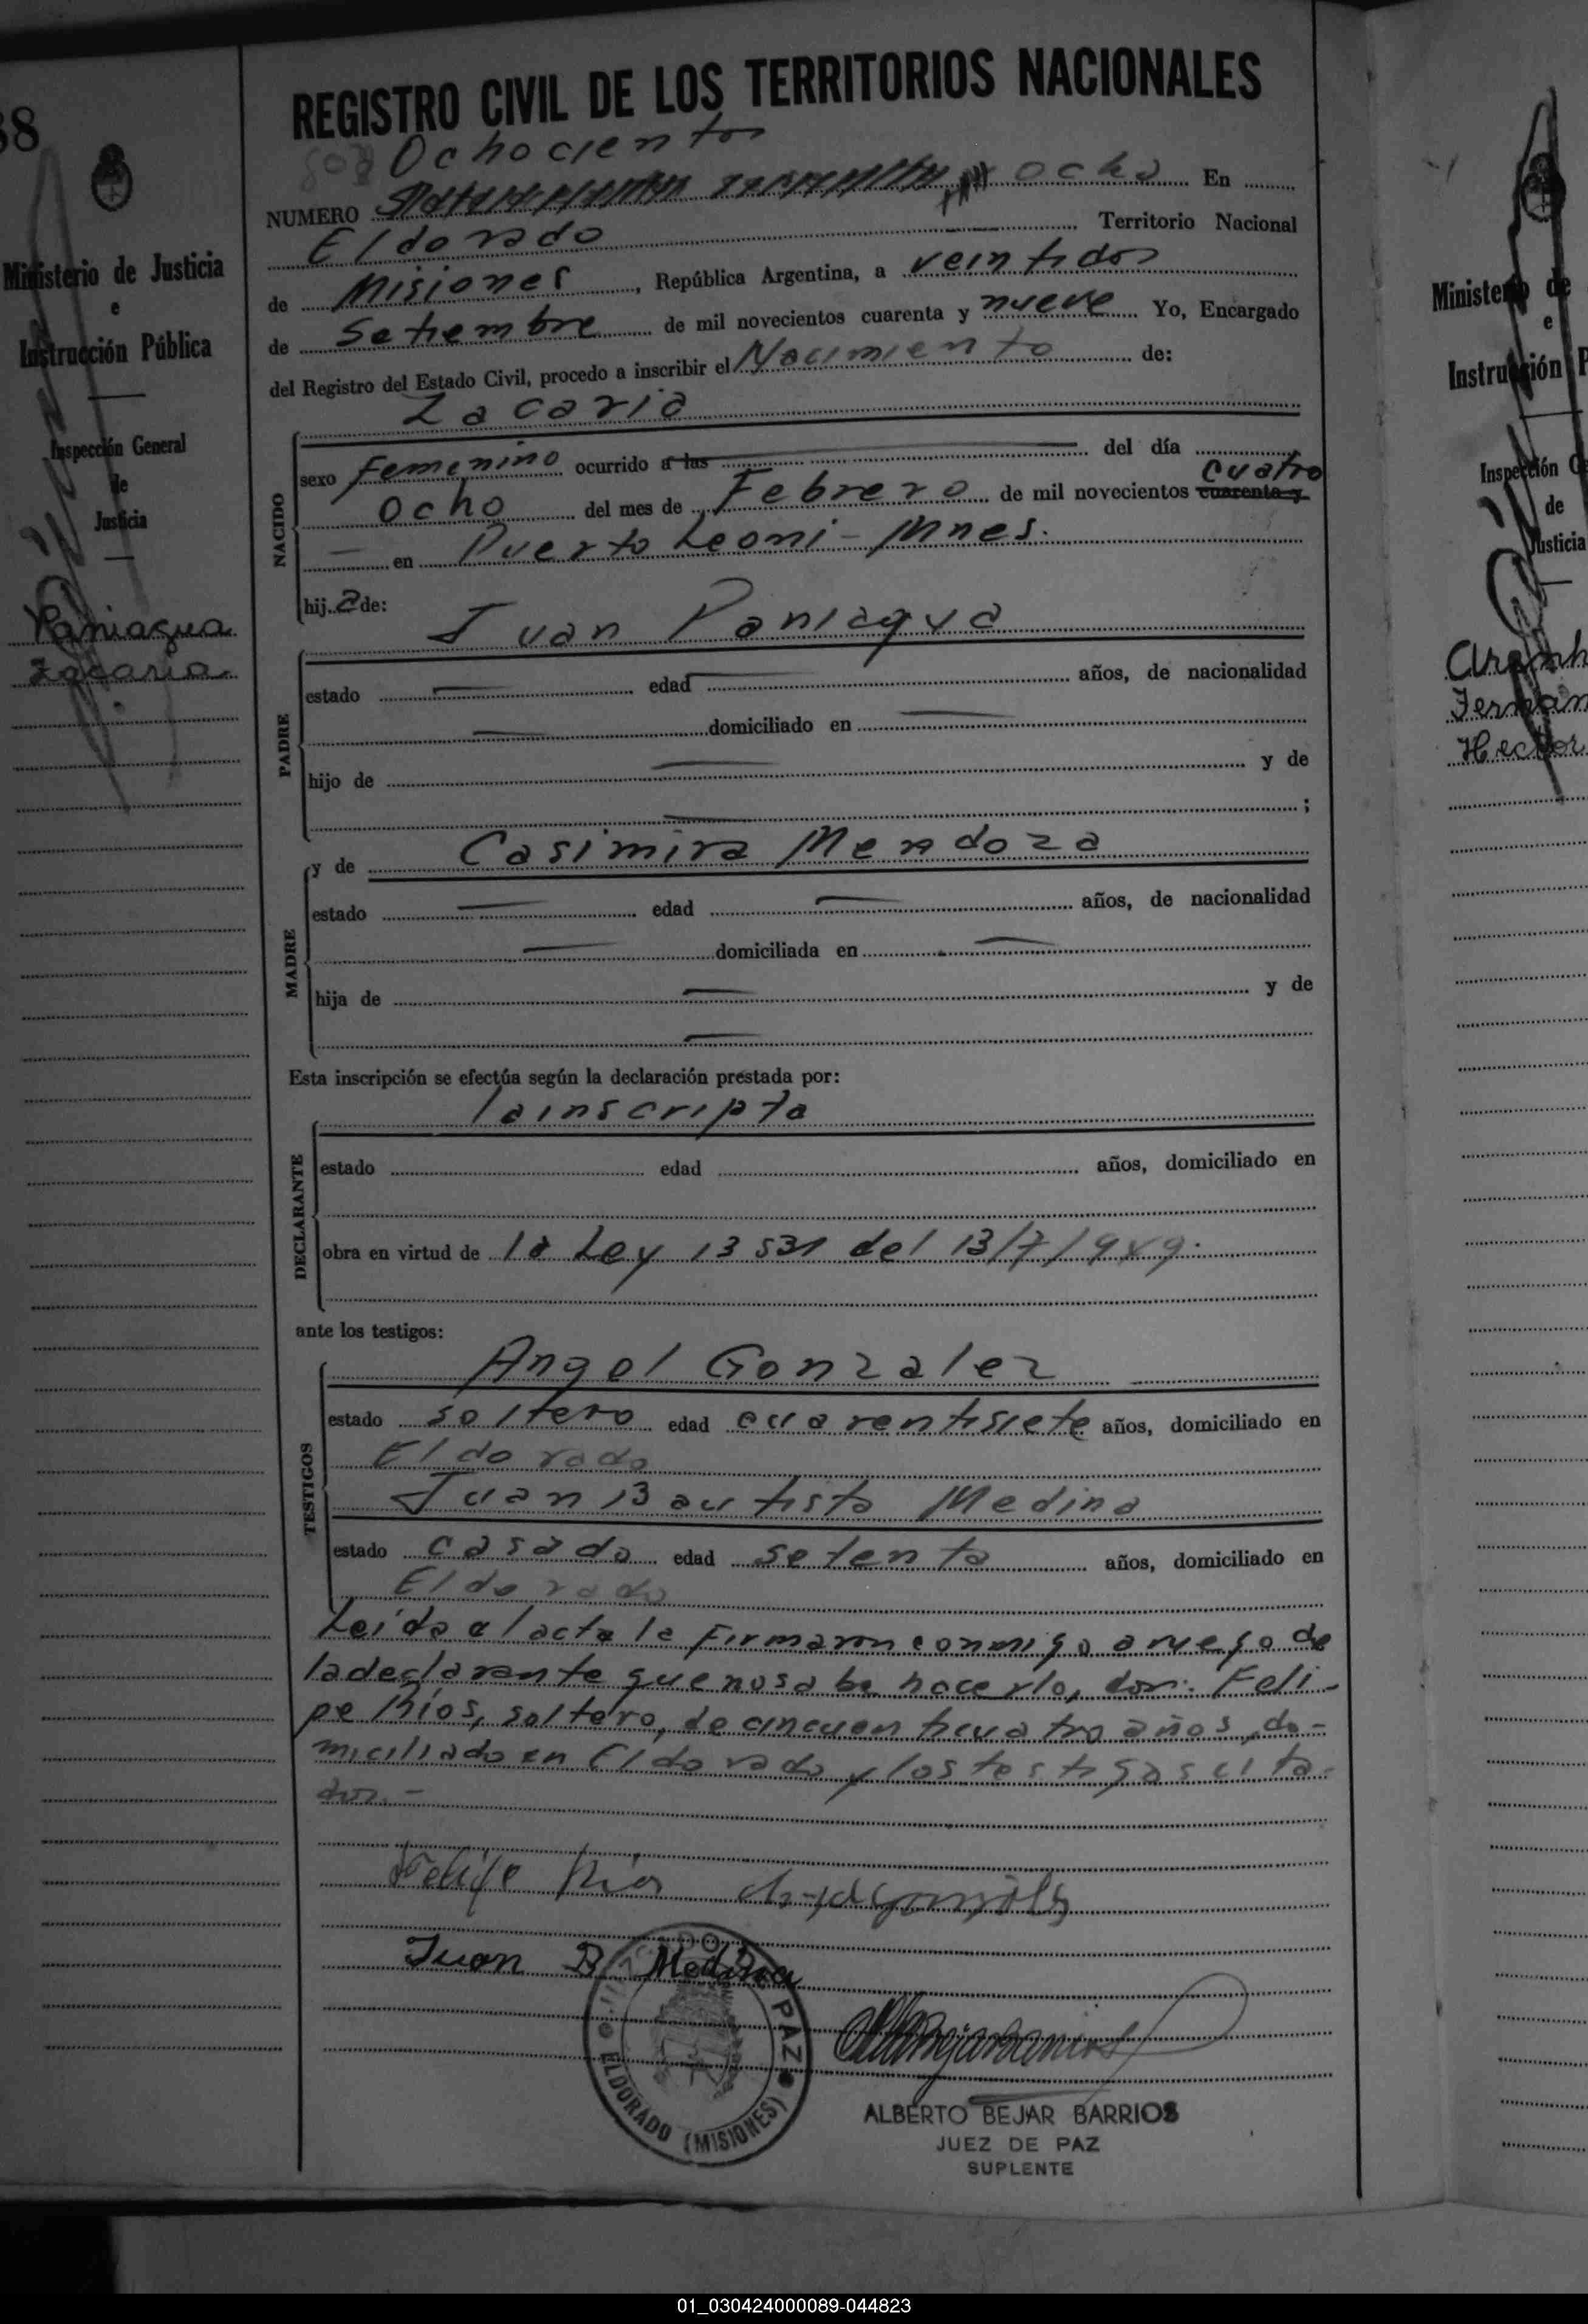 38
REGISTRO CIVIL DE LOS TERRITORIOS NACIONALES
808 Ochocientos
NUMERO ocho En
Eldorado Territorio Nacional
de Misiones, República Argentina, a veintidos
de Setiembre de mil novecientos cuarenta y nueve Yo, Encargado
del Registro del Estado Civil, procedo a inscribir el Nacimiento de:
Zacaria
NACIDO
sexo femenino ocurrido a las del día
ocho del mes de Febrero de mil novecientos cuarenta y cuatro
en Puerto Leoni - Mnes.
hija de:
Juan Paniagua
PADRE
estado edad años, de nacionalidad
domiciliado en
hijo de y de
;
y de Casimira Mendoza
MADRE
estado edad años, de nacionalidad
domiciliada en
hija de y de
Esta inscripción se efectúa según la declaración prestada por:
la inscripta
DECLARANTE
estado edad años, domiciliado en
obra en virtud de la Ley 13531 del 13/7/949.
ante los testigos:
Angel Gonzalez
TESTIGOS
estado soltero edad cuarentisiete años, domiciliado en
Eldorado
Juan Bautista Medina
estado casado edad setenta años, domiciliado en
Eldorado
Leida el acta la firmaron conmigo a ruego de
la declarante que no sabe hacerlo, don: Feli-
pe Rios, soltero, de cincuenticuatro años, do-
miciliado en Eldorado y los testigos cita-
dos.-
Felipe Rios
Juan B. Medina
PAZ
ELDORADO (MISIONES)
ALBERTO BEJAR BARRIOS
JUEZ DE PAZ
SUPLENTE
Ministerio de Justicia
e
Instrucción Pública
Inspección General
de
Justicia
Paniagua
Zacaria
Ministerio de
e
Instrucción P
Inspección G
de
Justicia
Hector
01_030424000089-044823